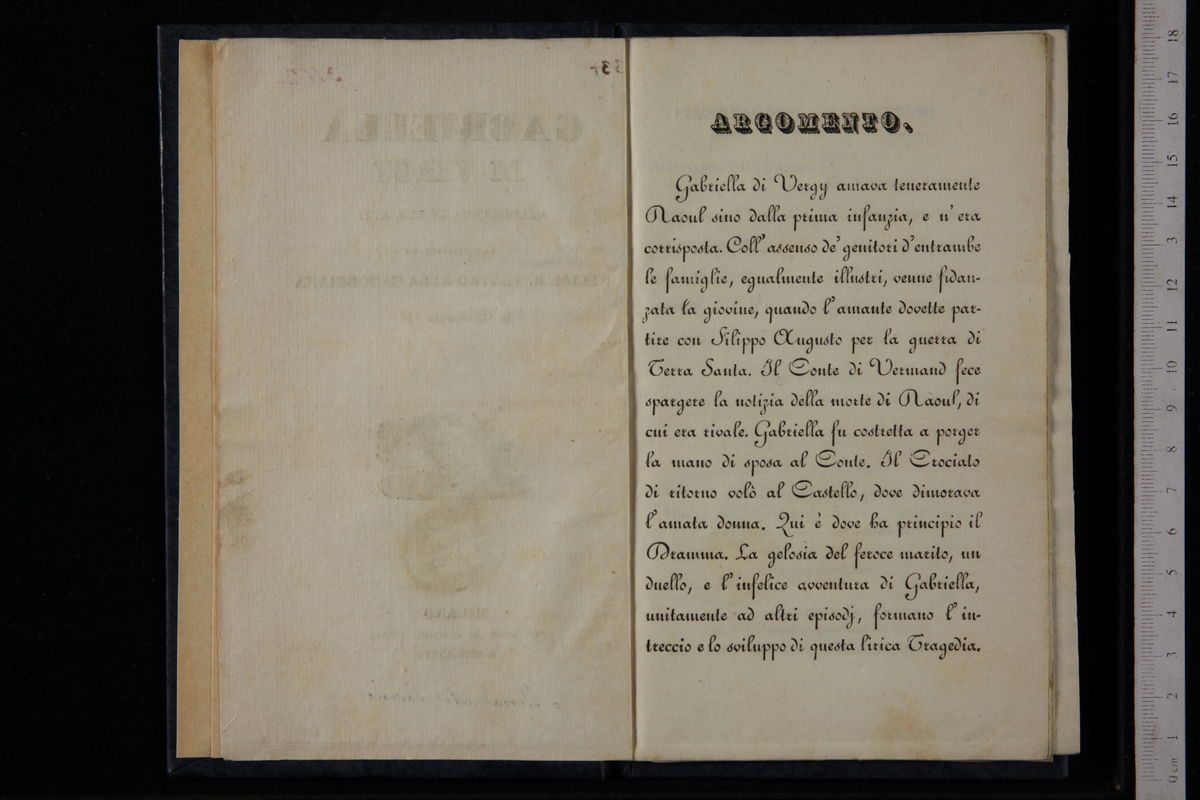 ARGOMENTO.
Gabriella di Vergy amava teneramente
Raoul sino dalla prima infanzia, e n' era
corrisposta. Coll' assenso de' genitori d' entrambe
le famiglie, egualmente illustri, venne fidan-
zata la giovine, quando l' amante dovette par-
tire con Filippo Augusto per la guerra di
Terra Santa. Il Conte di Vermand fece
spargere la notizia della morte di Raoul, di
cui era rivale. Gabriella fu costretta a porger
la mano di sposa al Conte. Il Crociato
di ritorno volò al Castello, dove dimorava
l' amata donna. Qui è dove ha principio il
Dramma. La gelosia del feroce marito, un
duello, e l' infelice avventura di Gabriella,
unitamente ad altri episodj, formano l' in-
treccio e lo sviluppo di questa lirica Tragedia.